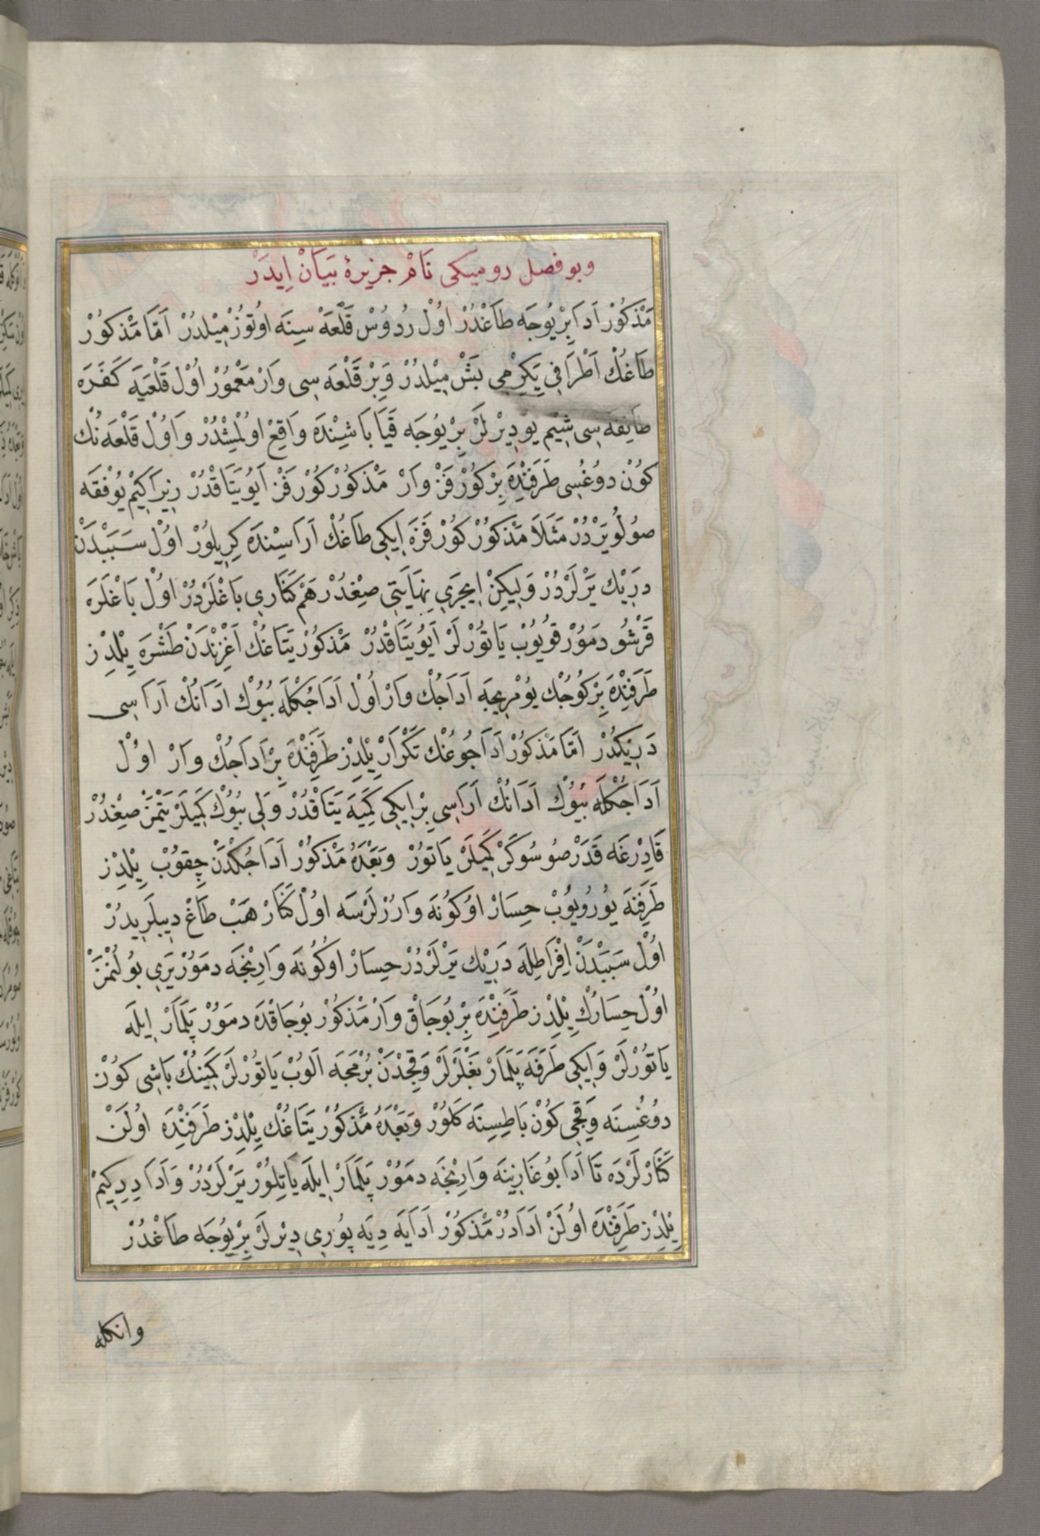 وبو فصل رومیکی نام جزیرهٔ بیان ایدر
مذکور ادا بر یوجه طاغدر اول ردوس قلعه سنه اوتوز میلدر اما مذکور
طاغك اطرافی یکرمی بش میلدر وبر قلعه سی وار معمور اول قلعیه کفره
طایفه سی شیم یو دیرلر بر یوجه قیا باشنده واقع اولمشدر واول قلعه نك
کون دوغسی طرفنده بر کورفز وار مذکور کورفز ایو یتاقدر زیرا کیم یوفقه
صولو یردر مثلا مذکور کورفزه ایکی طاغك اراسنده کریلور اول سببدن
درین یرلردر ولیکن ایچری نهایتی صغدر هم کناری باغلردر اول باغلره
قرشو دمور قویوب یاتورلر ایو یتاقدر مذکور یتاغك اغزندن طشره یلدز
طرفنده بر کوجك یومریجه اداجك وار اول اداجکله بیوك ادانك اراسی
درینکدر اما مذکور اداجوغك تکرار یلدز طرفنده بر اداجك وار اول
اداجکله بیوك ادانك اراسی بر ایکی کمیه یتاقدر ولی بیوك کمیلر یتمز صغدر
قادرغه قدر صو سوکر کمیلر یاتور وبعده مذکور اداجکدن چقوب یلدز
طرفنه یورویوب حسار اوکونه وارزلرسه اول کنار هب طاغ دیبلریدر
اول سببدن افراطله درین یرلردر حسار اوکونه وارنجه دمور یری بولنمز
اول حسارك یلدز طرفنده بر بوجاق وار مذکور بوجاقده دمور پلمار ایله
یاتورلر وایکی طرفه پلمار بغلرلر وقجدن برمجه الوب یاتورلر کمینك باشی کون
دوغسنه وقجی کون باطسنه کلور وبعده مذکور یتاغك یلدز طرفنده اولن
کنارلرده تا ادا بوغازینه وارنجه دمور پلمار ایله یاتلور یرلردر وادا ددکیم
یلدز طرفنده اولن ادادر مذکور ادایه دیه پوری دیرلر بر یوجه طاغدر
وانکله